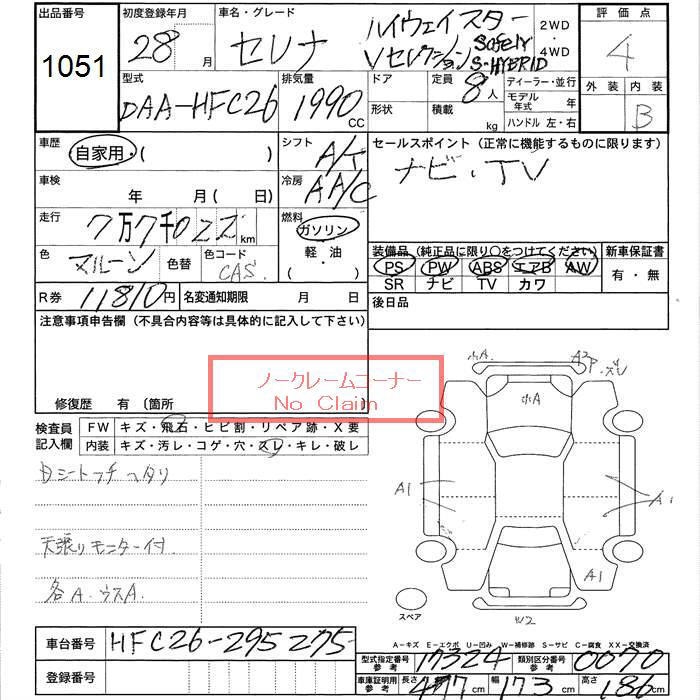 出品番号 初度登録年月 車名・グレード 評価点
1051 28月 セレナ ハイウェイスター
Vセレクション Safety S-HYBRID 2WD・4WD 4
型式 排気量 ドア 定員 ディーラー・並行 外装 内装
DAA-HFC26 1990cc 8人 モデル年式 年 B
形状 積載 kg ハンドル 左・右
車歴 自家用・( ) シフト A/T セールスポイント(正常に機能するものに限ります)
ナビ・TV
車検 年 月(日) 冷房 AA/C
走行 7万7千022km 燃料 ガソリン・軽・油・( )
色 マルーン 色替 色コード CAS
装備品(純正品に限り○をつけてください) 新車保証書
PS PW ABS エアB AW 有・無
SR ナビ TV カワ
R券 11810円 名変通知期限 月 日 後日品
注意事項申告欄(不具合内容等は具体的に記入して下さい)
ノークレームコーナー
No Claim
修復歴 有(箇所
検査員記入欄 FW キズ・飛石・ヒビ割・リペア跡・X要
内装 キズ・汚レ・コゲ・穴・スレ・キレ・破レ
Dシートフチヘタリ
天張りモニター付
各A.ウスA.
小A A2P 小A
A1 A1
A1
スペア W2
A-キズ E-エクボ U-凹み W-補修跡 S-サビ C-腐食 XX-交換済
車台番号 HFC26-295275
型式指定番号参考 17324 類別区分番号参考 0070
登録番号
車庫証明用参考 長さ 477cm 幅 173cm 高さ 186cm